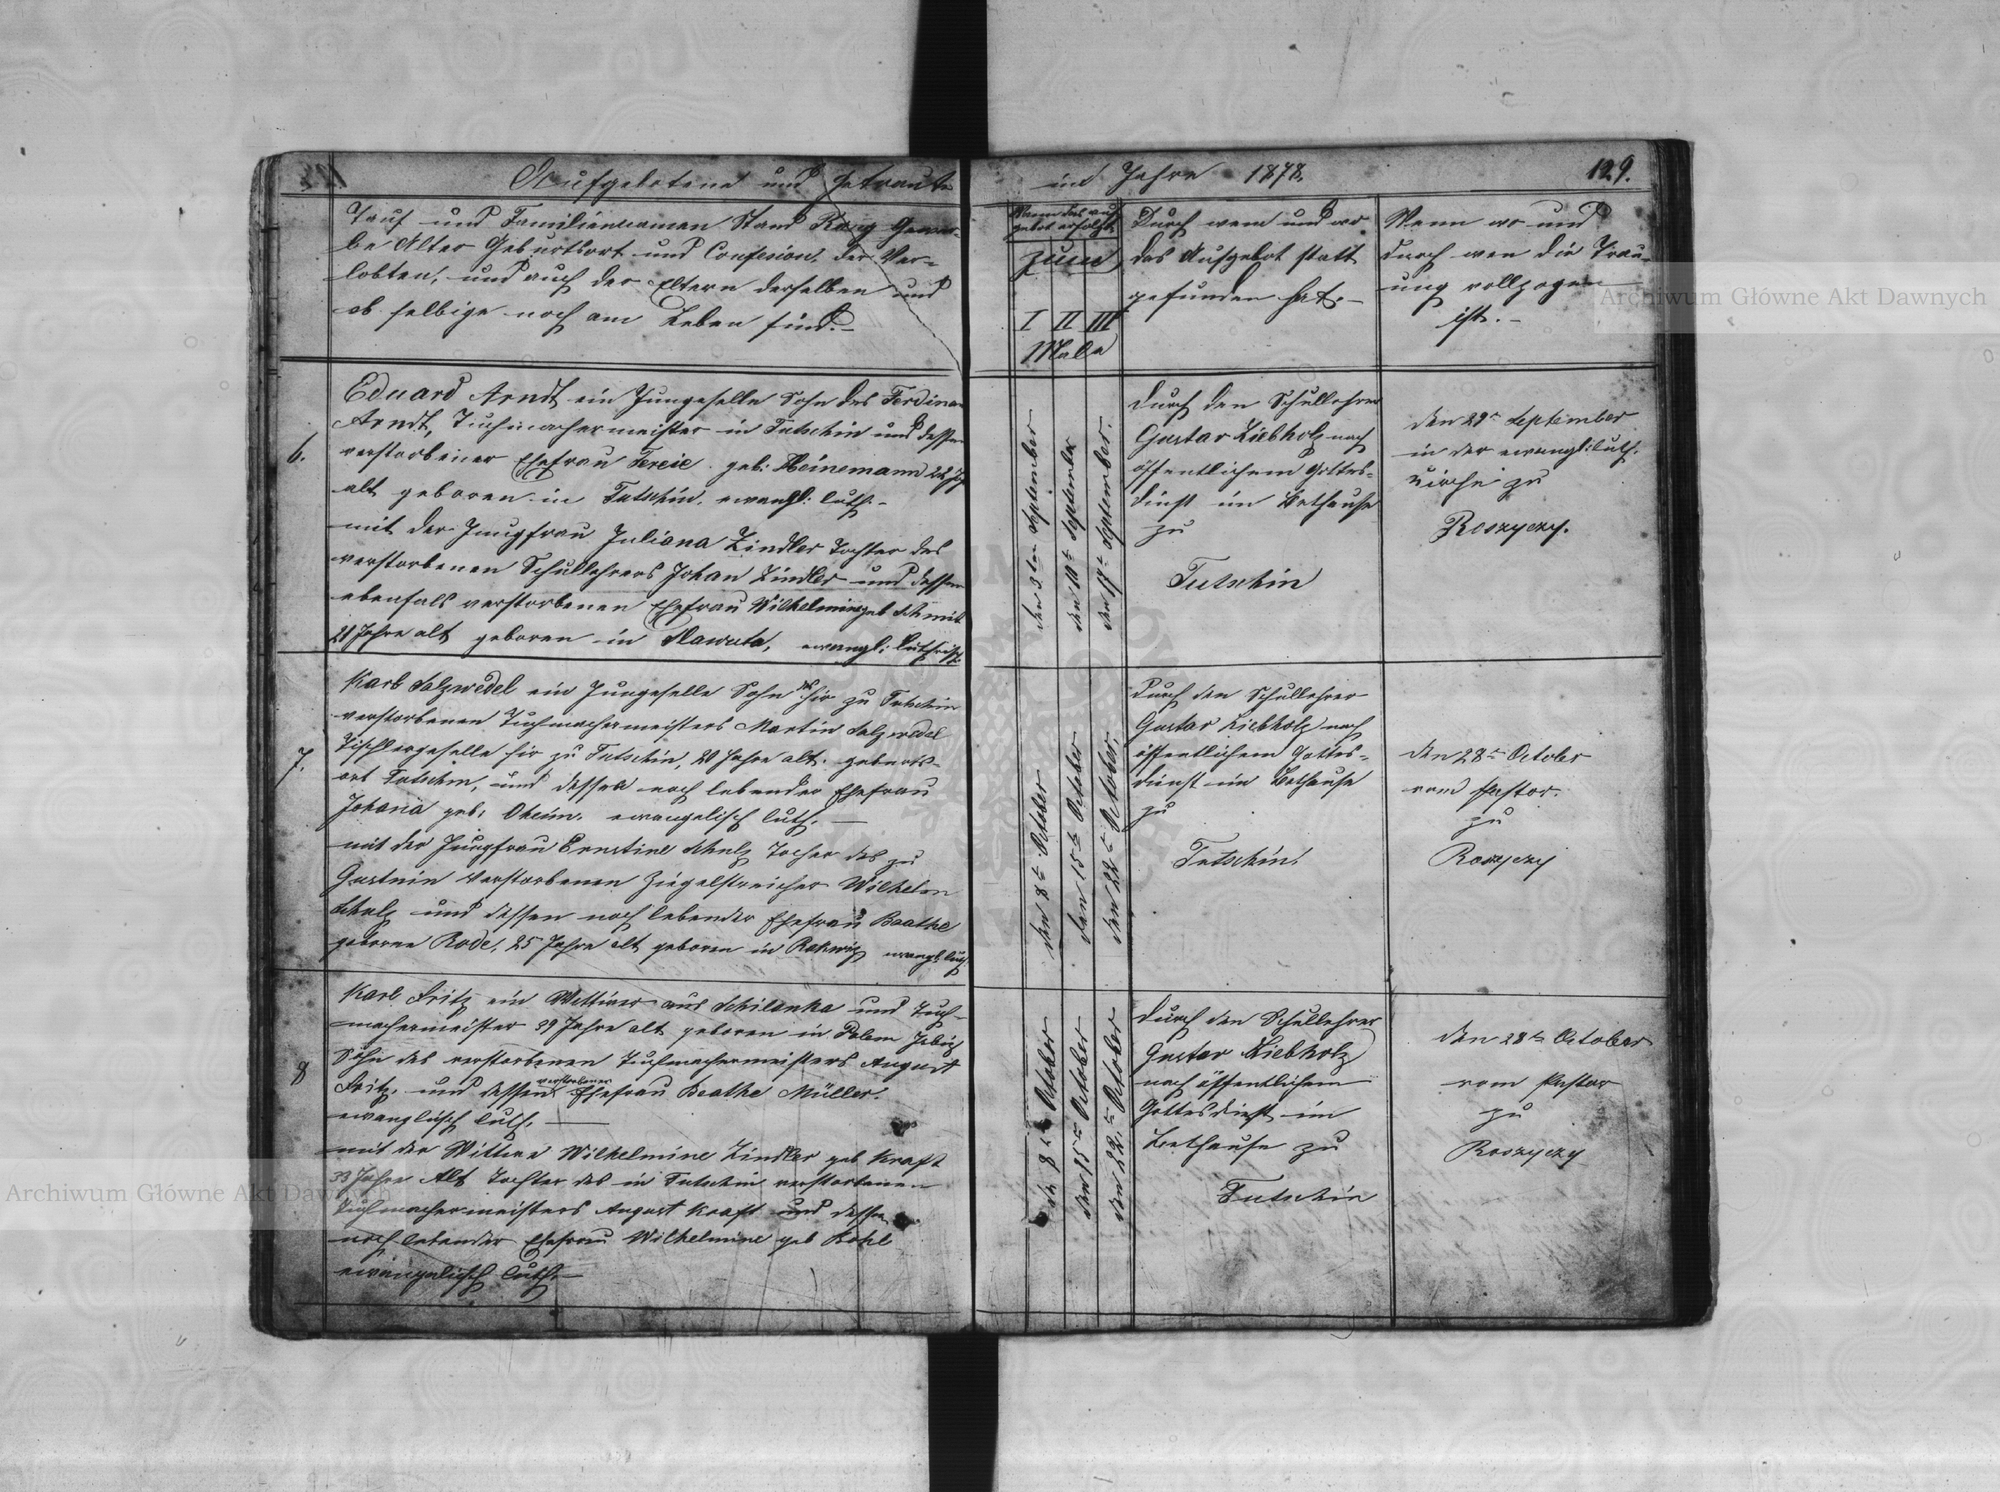 Aufgebotene und Getraute
im Jahre 1878.
129.
Tauf und Familiennamen Stand Rang Gewer-
be Alter Geburtsort und Confesion, der Ver-
lobten, und auch der Eltern derselben und
ob selbige noch am Leben sind.-
Wann das auf
gebot erfolgt
zum
I II III
Male
Durch wem und wo
das Aufgebot statt
gefunden hat.-
Wenn wo und
durch wen die Trau-
ung vollzogen
ist.-
6.
Eduard Arndt ein Jungeselle Sohn des Ferdinan
Arndt, Tuchmachermeister in Tutschin und dessen
verstorbener Ehefrau geb: Heinemann 22 J
alt geboren in Tutschin. evangl: luth.-
mit der Jungfrau Juliana Zindler Tochter des
verstorbenen Schullehrers Johan Zindler und dessen
ebenfals verstorbenen Ehefrau Wilhelmine geb Schmit
21 Jahre alt geboren in Slawuta, evangl:
den 3ten September
den 10t September
den 17t September.
Durch den Schullehrer
Gustav Liebholz nach
öffentlichem Gottes-
dinst im Bethause
zu
Tutschin
den September
in der evangl: luth.
Kirche zu
Roszyczy.
7.
Karl Salzwedel ein Jungeselle Sohn des hir zu Tutschin
verstorbenen Tuchmachermeisters Martin Salzwedel
Tischlergeselle hir zu Tutschin, 20 Jahre alt. geburts-
ort Tutschin, und dessen noch lebender Ehefrau
Johana geb: Oheim. evangelisch luth.-
mit der Jungfrau Ernstine Schulz Tocher des zu
verstorbenen Ziegelstreicher Wilhelm
Schulz und dessen noch lebender Ehefrau Beathe
geborne Rode, 25 Jahre alt geboren in evangl. luth
den 8t October
den 15t October
den 22t October.
Durch den Schullehrer
Gustav Liebholz nach
öffentlichem Gottes-
dinst im Bethause
zu
Tutschin.
den 28t October
vom Pastor.
zu
Roszyczy
8
Karl Fritz ein Wittwer aus Schilanka und Tuch-
machermeister 39 Jahre alt geboren in Polen
Sohn des verstorbenen Tuchmachermeisters August
Fritz. und dessen verstorbener Ehefrau Beathe Müller.
evanglisch luth.
mit der Wittwe Wilhelmine Zindler geb Kraft
33 Jahre Alt Tochter des in Tutschin verstorbenen
Tuchmachermeisters August Kraft und dessen
noch lebender Ehefrau Wilhelmine geb Kohl
evangelisch luth.-
den 8t October
den 15t October
den 22t October
Durch den Schullehrer
Gustav Liebholz
nach öffentlichem
Gottesdinst im
Bethause zu
Tutschin
den 28t October
vom Pastor
zu
Roszyczy
Archiwum Główne Akt Dawnych
Archiwum Główne Akt Dawnych